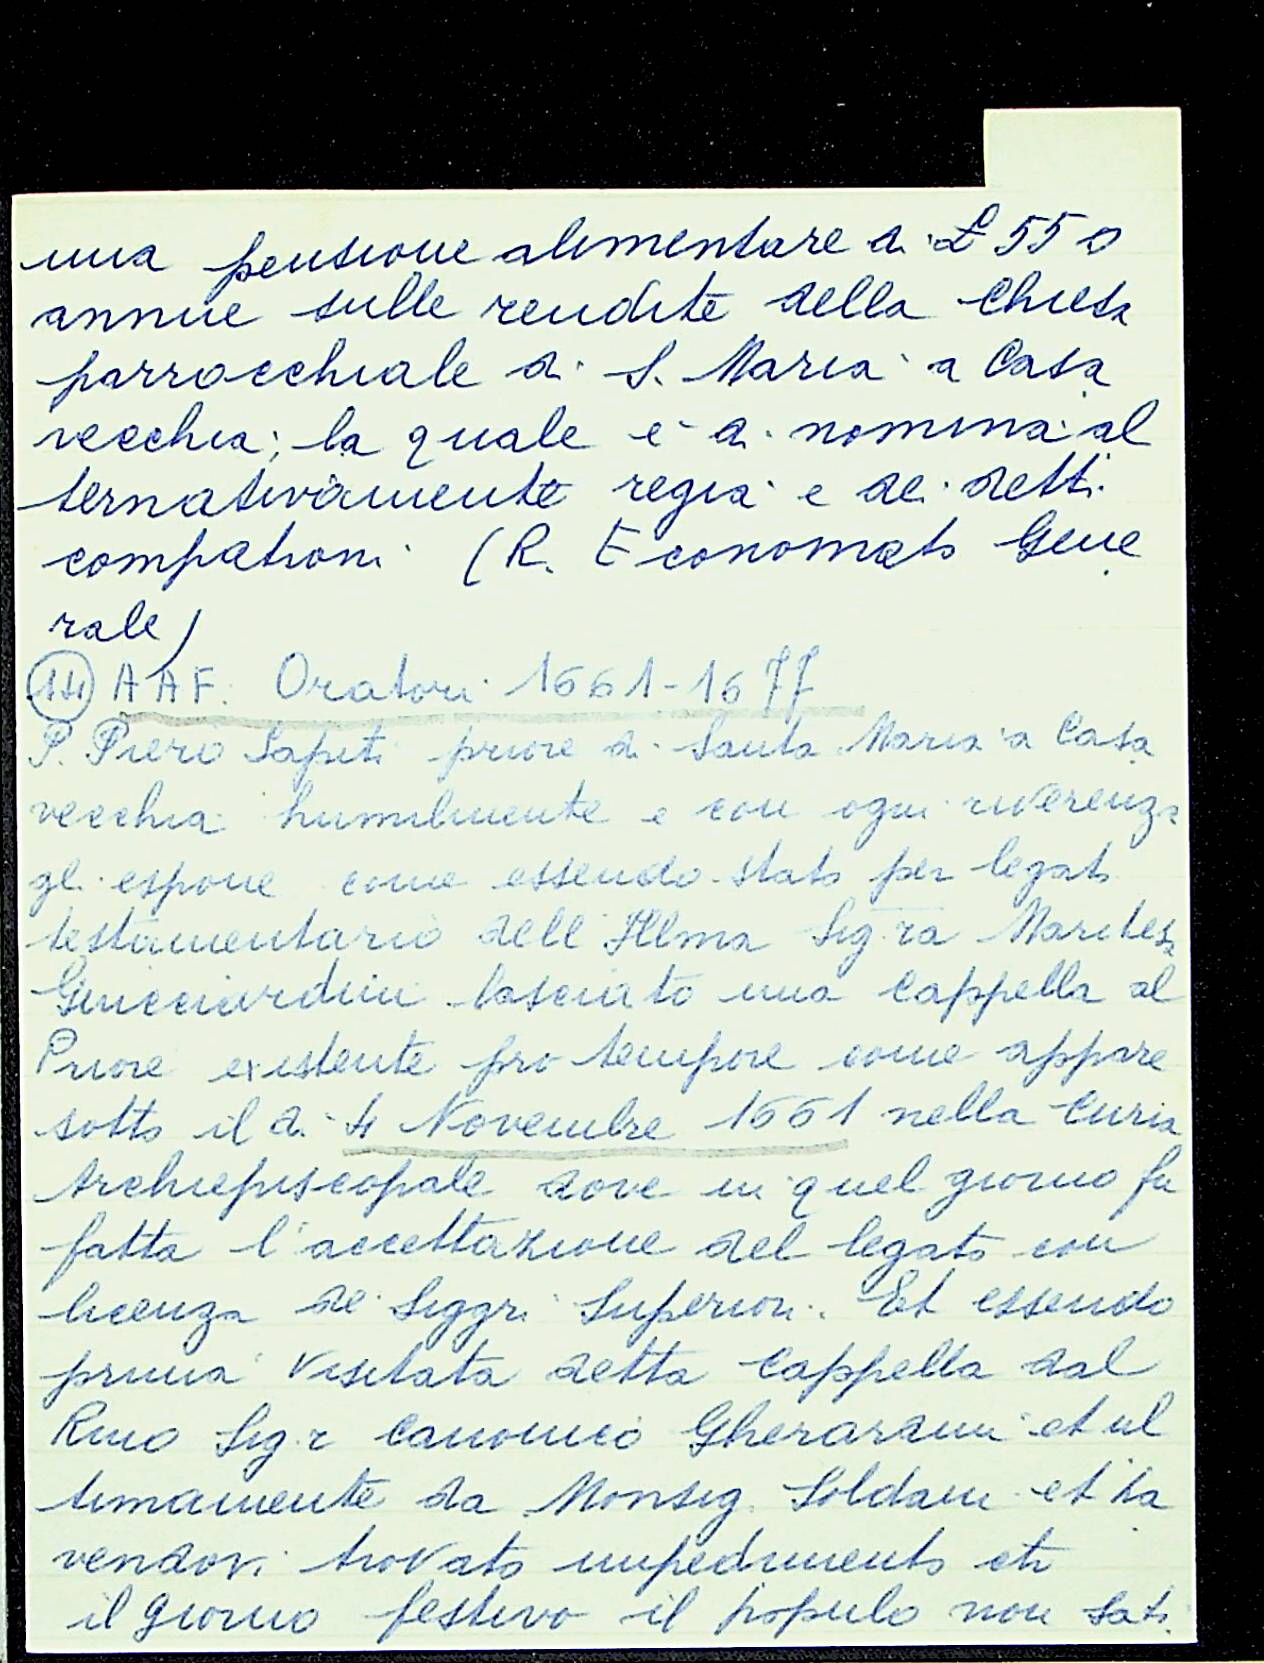 una pensione alimentare di £ 550
annue sulle rendite della Chiesa
parrocchiale di S. Maria a Casa
vecchia; la quale è di nomina al
ternativamente regia e dei detti
compatroni (R. Economato Gene
rale)
AAF. Oratori 1661-1677
P. Piero Lapiti priore di Santa Maria a Casa
vecchia humilmente e con ogni riverenza
gli espone come essendo stato per legato
testamentario dell'Illma Sig.ra Marchesa
Guicciardini lasciato una Cappella al
Priore existente pro tempore come appare
sotto il dì 4 Novembre 1661 nella Curia
Archiepiscopale dove in quel giorno fu
fatta l'accettazione del legato con
licenza de Siggri Superiori. Et essendo
prima visitata detta Cappella dal
Rmo Sig.r Canonico Gherardini et ul
timamente da Monsig. Soldani et ha
vendovi trovato impedimento
il giorno festivo il populo non